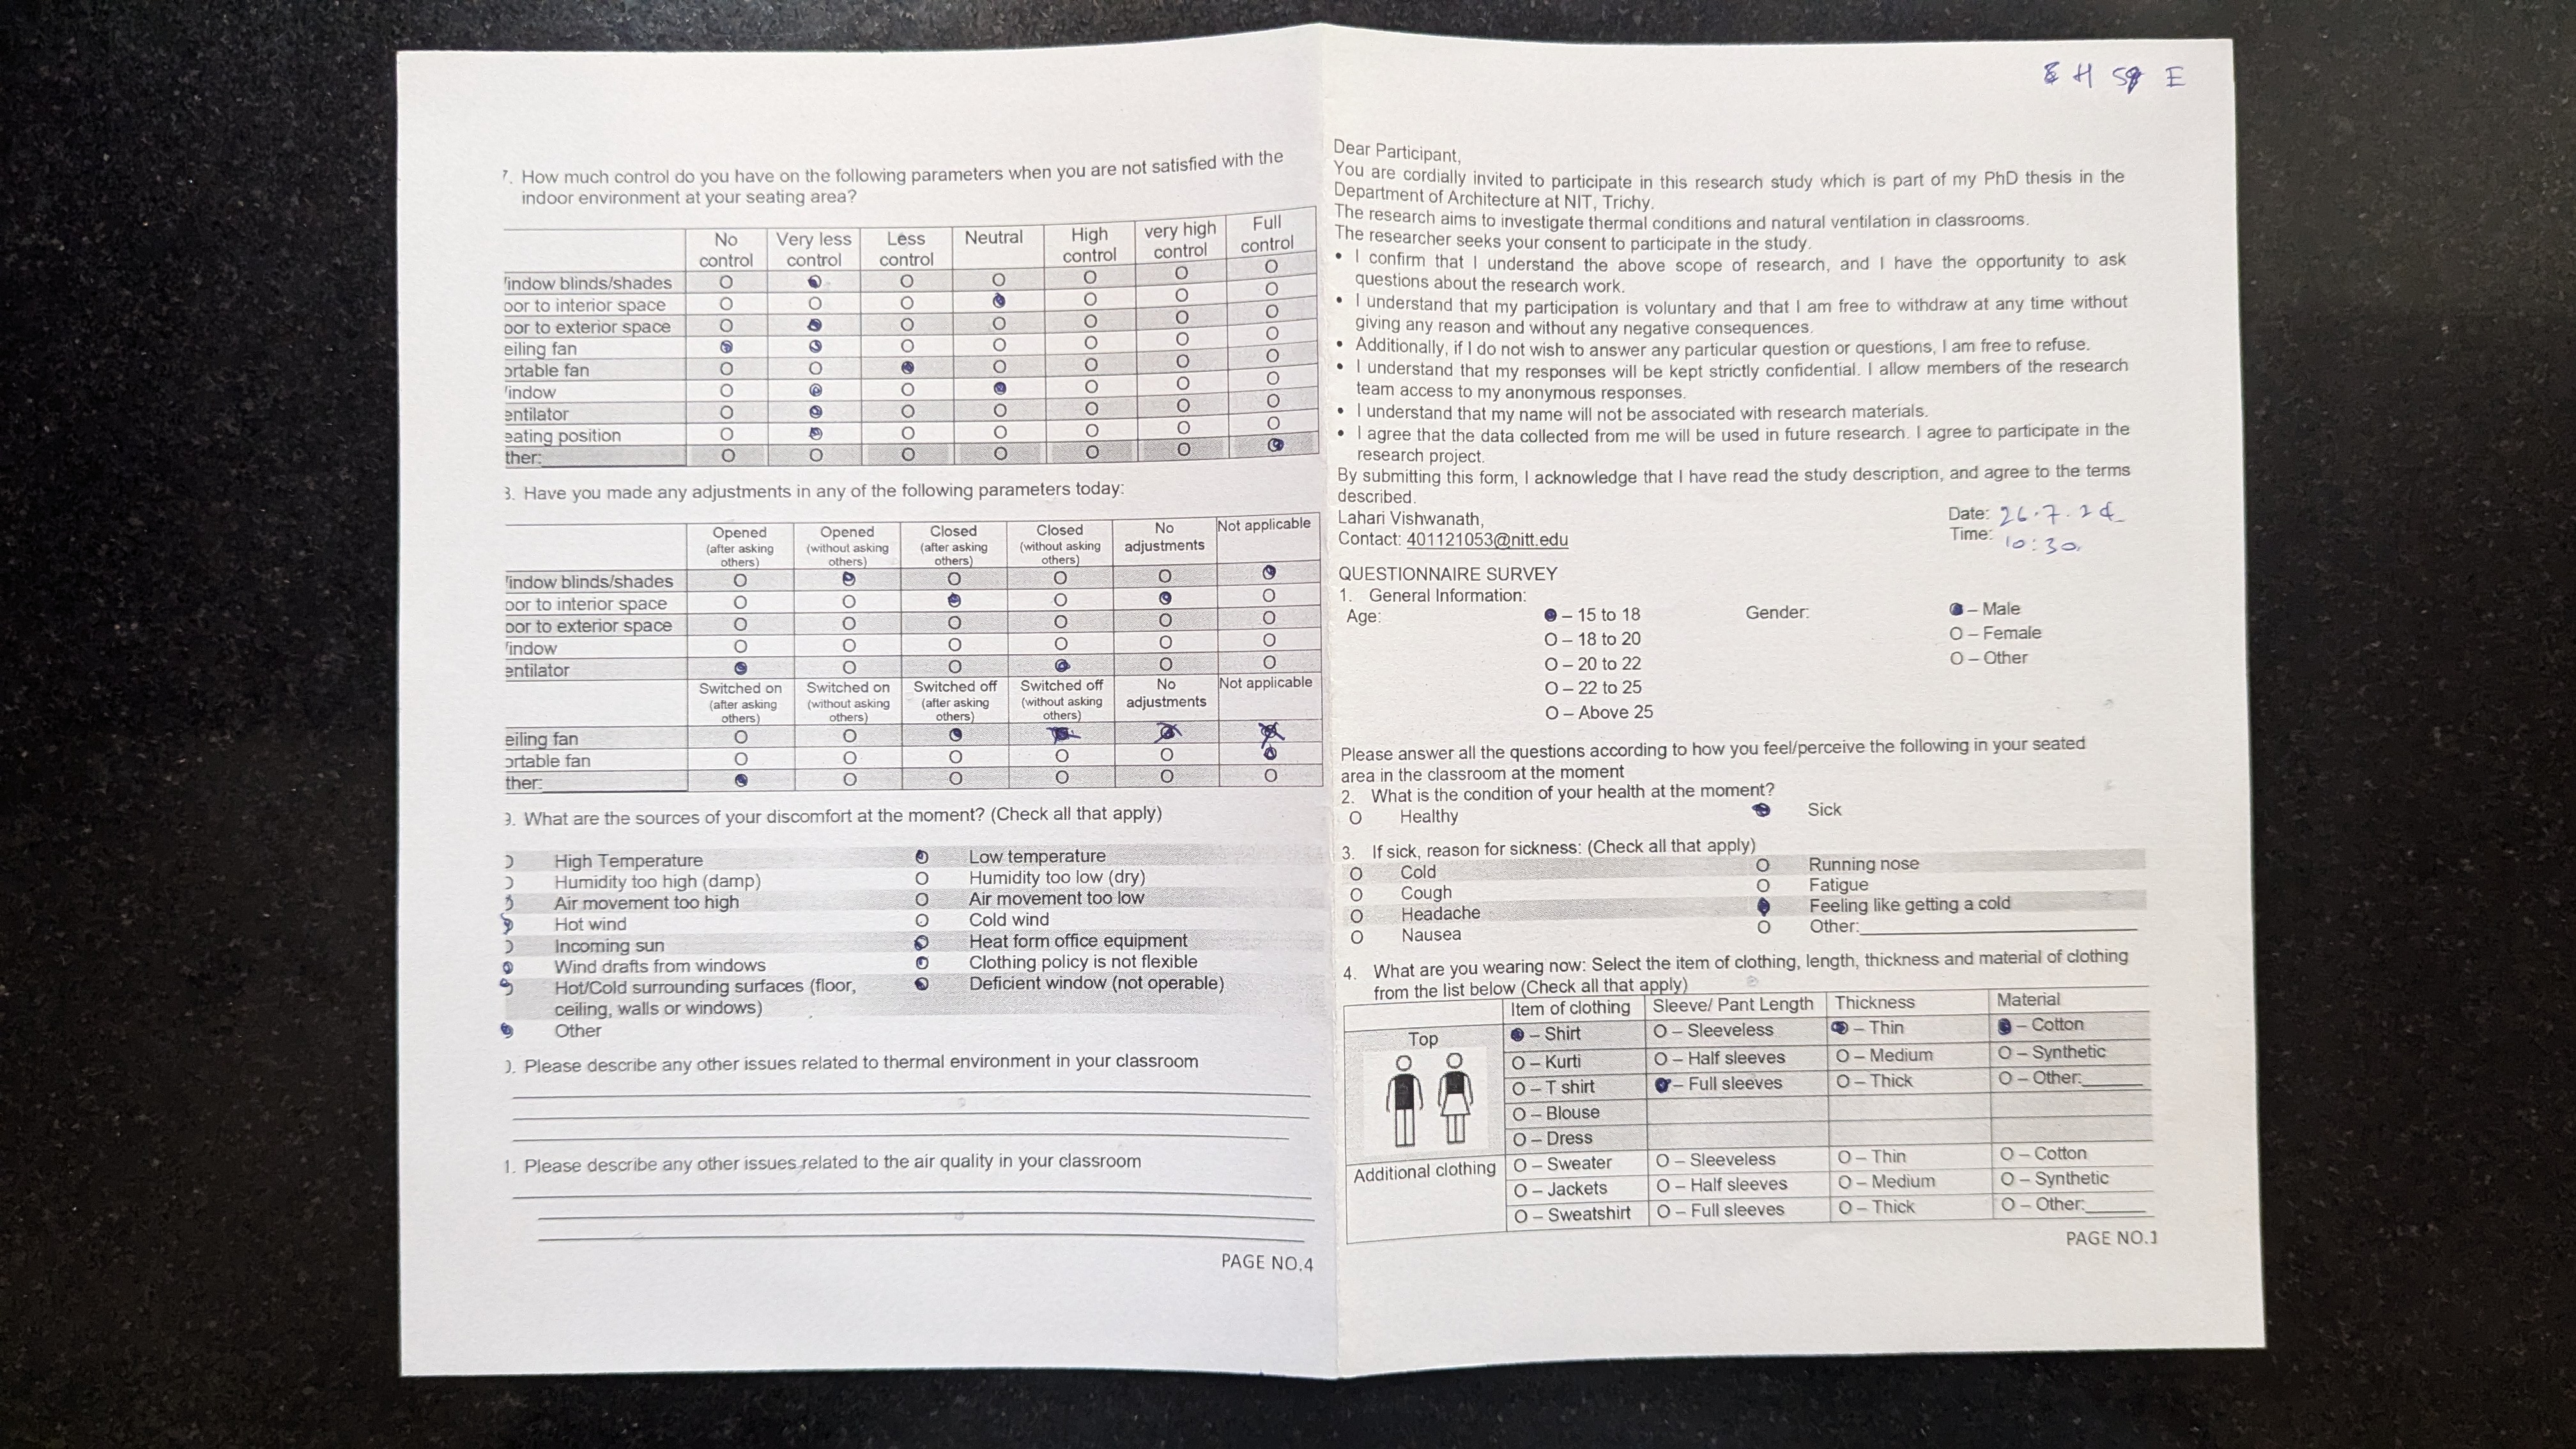 7. How much control do you have on the following parameters when you are not satisfied with the
indoor environment at your seating area?
No control Very less control Less control Neutral High control very high control Full control
indow blinds/shades O O O O O O O
oor to interior space O O O O O O O
oor to exterior space O O O O O O O
eiling fan O O O O O O O
ortable fan O O O O O O O
indow O O O O O O O
entilator O O O O O O O
eating position O O O O O O O
ther: O O O O O O O
3. Have you made any adjustments in any of the following parameters today:
Opened (after asking others) Opened (without asking others) Closed (after asking others) Closed (without asking others) No adjustments Not applicable
indow blinds/shades O O O O O O
oor to interior space O O O O O O
oor to exterior space O O O O O O
indow O O O O O O
entilator O O O O O O
Switched on (after asking others) Switched on (without asking others) Switched off (after asking others) Switched off (without asking others) No adjustments Not applicable
eiling fan O O O
ortable fan O O O O O O
ther: O O O O O O
9. What are the sources of your discomfort at the moment? (Check all that apply)
High Temperature O Low temperature
Humidity too high (damp) O Humidity too low (dry)
Air movement too high O Air movement too low
Hot wind O Cold wind
Incoming sun O Heat form office equipment
Wind drafts from windows O Clothing policy is not flexible
Hot/Cold surrounding surfaces (floor, O Deficient window (not operable)
ceiling, walls or windows)
Other
). Please describe any other issues related to thermal environment in your classroom
1. Please describe any other issues related to the air quality in your classroom
PAGE NO.4
H E
Dear Participant,
You are cordially invited to participate in this research study which is part of my PhD thesis in the
Department of Architecture at NIT, Trichy.
The research aims to investigate thermal conditions and natural ventilation in classrooms.
The researcher seeks your consent to participate in the study.
• I confirm that I understand the above scope of research, and I have the opportunity to ask
questions about the research work.
• I understand that my participation is voluntary and that I am free to withdraw at any time without
giving any reason and without any negative consequences.
• Additionally, if I do not wish to answer any particular question or questions, I am free to refuse.
• I understand that my responses will be kept strictly confidential. I allow members of the research
team access to my anonymous responses.
• I understand that my name will not be associated with research materials.
• I agree that the data collected from me will be used in future research. I agree to participate in the
research project.
By submitting this form, I acknowledge that I have read the study description, and agree to the terms
described.
Lahari Vishwanath, Date: 26.7.24
Contact: 401121053@nitt.edu Time: 10:30
QUESTIONNAIRE SURVEY
1. General Information:
Age: O – 15 to 18 Gender: O – Male
O – 18 to 20 O – Female
O – 20 to 22 O – Other
O – 22 to 25
O – Above 25
Please answer all the questions according to how you feel/perceive the following in your seated
area in the classroom at the moment
2. What is the condition of your health at the moment?
O Healthy O Sick
3. If sick, reason for sickness: (Check all that apply)
O Cold O Running nose
O Cough O Fatigue
O Headache O Feeling like getting a cold
O Nausea O Other:
4. What are you wearing now: Select the item of clothing, length, thickness and material of clothing
from the list below (Check all that apply)
Item of clothing Sleeve/ Pant Length Thickness Material
Top O – Shirt O – Sleeveless O – Thin O – Cotton
O – Kurti O – Half sleeves O – Medium O – Synthetic
O – T shirt O – Full sleeves O – Thick O – Other:
O – Blouse
O – Dress
Additional clothing O – Sweater O – Sleeveless O – Thin O – Cotton
O – Jackets O – Half sleeves O – Medium O – Synthetic
O – Sweatshirt O – Full sleeves O – Thick O – Other:
PAGE NO.1